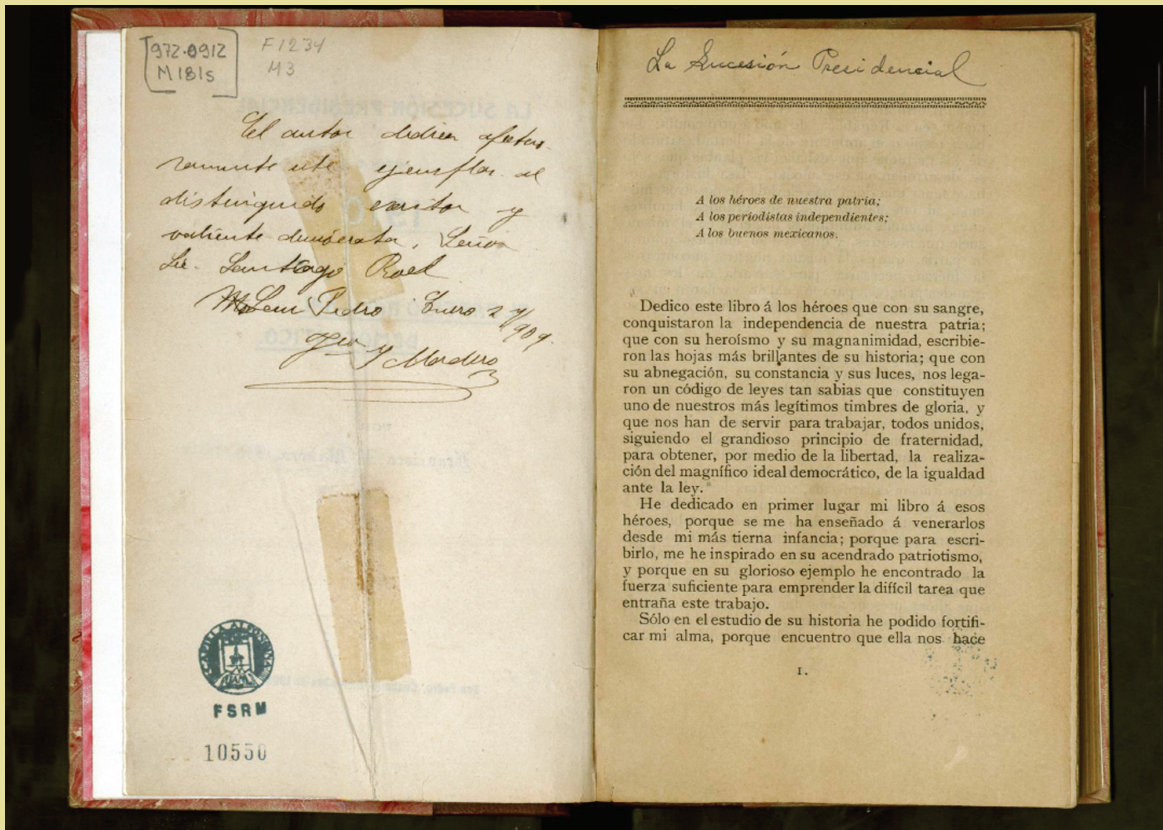 972.0912
M181s
F1234
M3
El autor dedica afectuo-
samente este ejemplar al
distinguido escritor y
valiente demócrata, Señor
Lic. Santiago Roel
San Pedro Enero 2 1909.
Fco I Madero
CAPILLA ALFONSINA
UANL
FSRM
10550
La Sucesión Presidencial
A los héroes de nuestra patria;
A los periodistas independientes;
A los buenos mexicanos.
Dedico este libro á los héroes que con su sangre,
conquistaron la independencia de nuestra patria;
que con su heroísmo y su magnanimidad, escribie-
ron las hojas más brillantes de su historia; que con
su abnegación, su constancia y sus luces, nos lega-
ron un código de leyes tan sabias que constituyen
uno de nuestros más legítimos timbres de gloria, y
que nos han de servir para trabajar, todos unidos,
siguiendo el grandioso principio de fraternidad,
para obtener, por medio de la libertad, la realiza-
ción del magnífico ideal democrático, de la igualdad
ante la ley.
He dedicado en primer lugar mi libro á esos
héroes, porque se me ha enseñado á venerarlos
desde mi más tierna infancia; porque para escri-
birlo, me he inspirado en su acendrado patriotismo,
y porque en su glorioso ejemplo he encontrado la
fuerza suficiente para emprender la difícil tarea que
entraña este trabajo.
Sólo en el estudio de su historia he podido fortifi-
car mi alma, porque encuentro que ella nos hace
1.